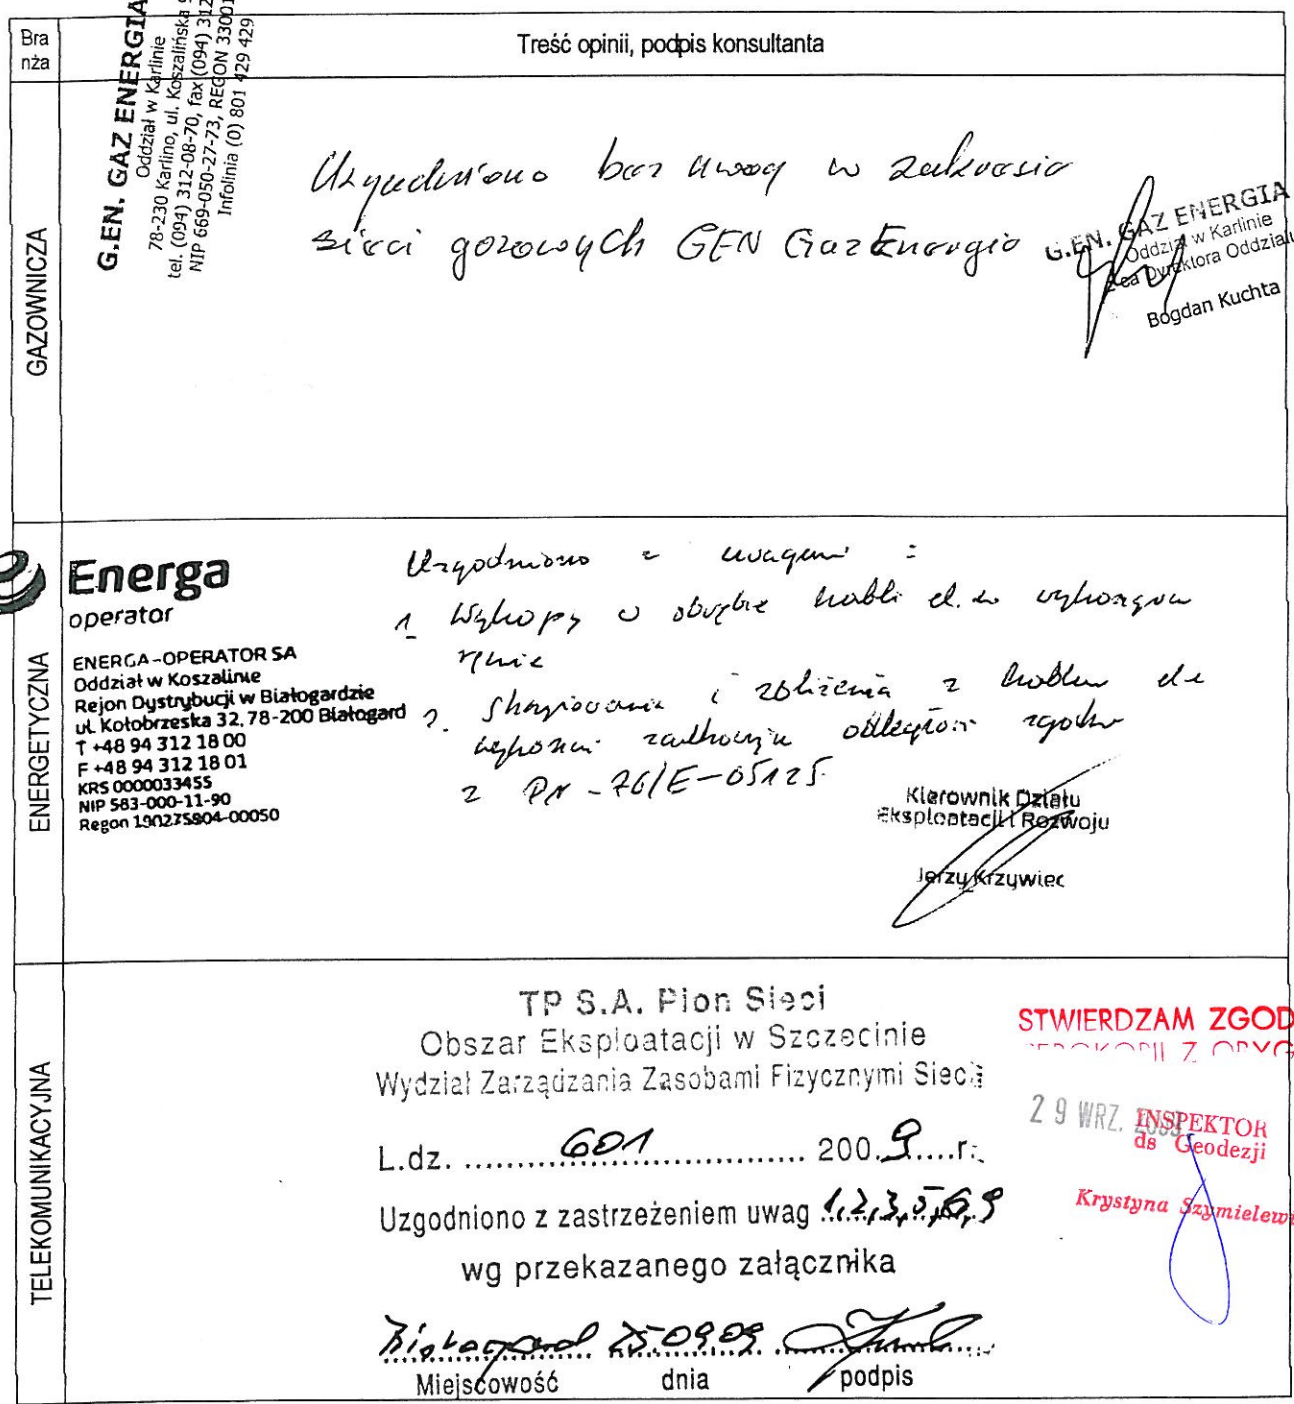 Bra
nża
Treść opinii, podpis konsultanta
GAZOWNICZA
G.EN. GAZ ENERGIA
Oddział w Karlinie
78-230 Karlino, ul. Koszalińska
tel. (094) 312-08-70, fax (094) 312
NIP 669-050-27-73, REGON 33001
Infolinia (0) 801 429 429
Uzgodniono bez uwag w zakresie
sieci gazowych GEN Gaz Energia
G.EN. GAZ ENERGIA
Oddział w Karlinie
Z-ca Dyrektora Oddziału
Bogdan Kuchta
ENERGETYCZNA
Energa
operator
ENERGA-OPERATOR SA
Oddział w Koszalinie
Rejon Dystrybucji w Białogardzie
ul. Kołobrzeska 32, 78-200 Białogard
T +48 94 312 18 00
F +48 94 312 18 01
KRS 0000033455
NIP 583-000-11-90
Regon 190275904-00050
Uzgodniono z uwagami :
1. Wykopy w obrębie kabli el. en wykonywać
ręcznie
2. Skrzyżowania i zbliżenia z kablem
wykonać zachowując odległości zgodne
z PN-76/E-05125.
Kierownik Działu
Eksploatacji i Rozwoju
Jerzy Krzywiec
TELEKOMUNIKACYJNA
TP S.A. Pion Sieci
Obszar Eksploatacji w Szczecinie
Wydział Zarządzania Zasobami Fizycznymi Sieci
L.dz. 601 200.9 r.
Uzgodniono z zastrzeżeniem uwag 1,2,3,5,6,9
wg przekazanego załącznika
Białogard 25.09.09
Miejscowość dnia podpis
STWIERDZAM ZGOD
Z ORYG
29 WRZ. 2009
INSPEKTOR
ds Geodezji
Krystyna Szymielewi